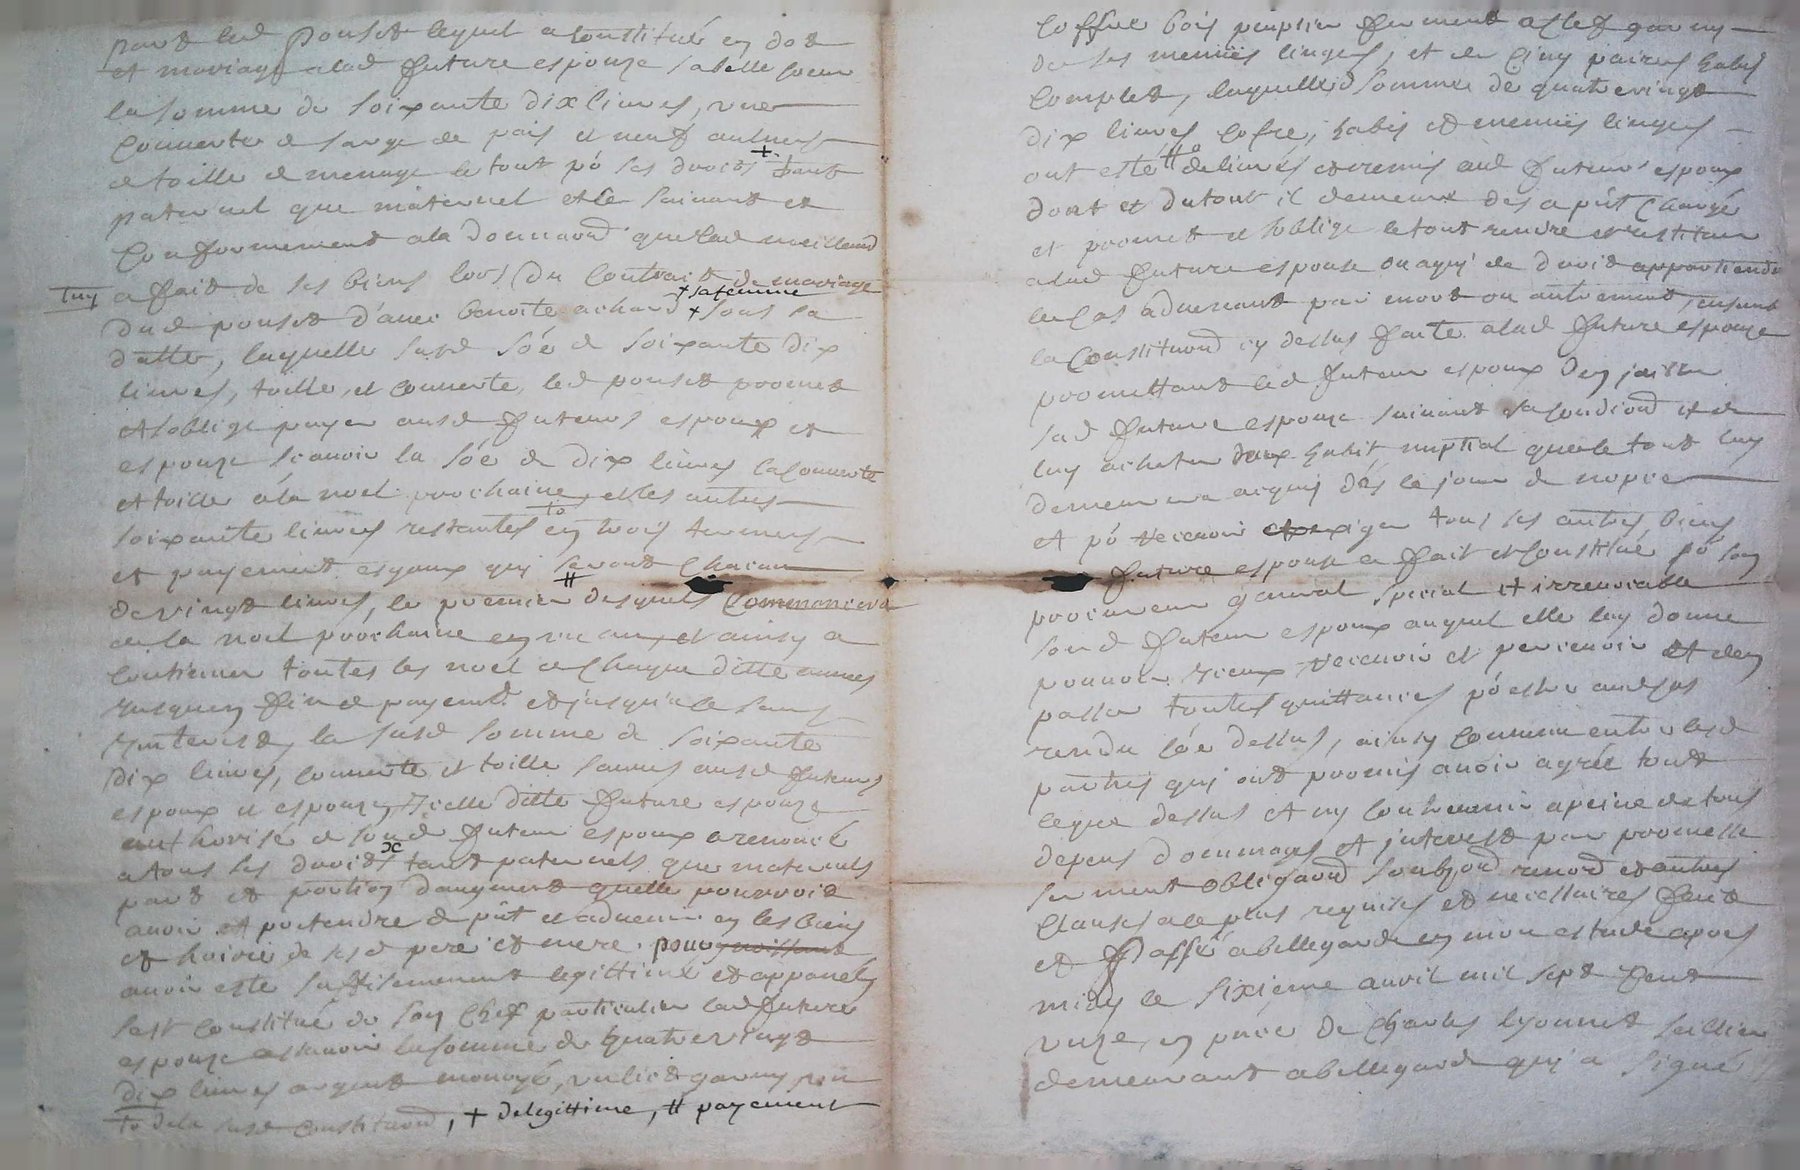 part led ponset lequel a constitué en dot
et mariage a lad future espouze sa belle soeur
la somme de soixante dix livres, une
couverte de sarge de pais et neuf aulnes
de toille de menage le tout po ses droits + tant
paternel que maternel et le suivant et
conformement a la donnaond que lad
a fait de ses biens lors du contrait de mariage
dud ponset d'avec benoite achard + sous sa
+ sa femme
datte, laquelle susd soe de soixante dix
livres, toille, et couverte, led ponset promet
et soblige payer ausd futeurs espoux et
espouze scavoir la soe de dix livres la couverte
et toille a la noel prochaine, et les autres
soixante livres restantes to en trois termes
et payement esgaux qui seront chacun
de vingt livres, le premier # desquels commencera
de la noel prochaine en un an, et ainsy a
continuer toutes les noel de chaque ditte annees
jusques en fin de payemt et jusqu'a ce sans
interest, la susd somme de soixante
dix livres, couverte et toille ausd futeurs
espoux et espouze, icelle ditte future espouze
authorisé de sond futeur espoux a renoncé
a tous ses droits x tant paternels que maternels
part et portion d'augment quelle pourroit
avoir et pretendre de pnt et advenir en les biens
et hoirie de sesd pere et mere,
avoir esté suffisement legittimé et appanés
sest constitué de son chef particulier lad future
espouze scavoir la somme de quatre vingt
dix livres argent monoyé, un lict garny
to de la susd constituond, + de legittime, # payement
coffre bois peuplier ferment a clef garny
de ses menues linges, et de cinq paires habis
complet, laquelle d somme de quatre vingt
dix livres cofre, habis et menues linges
ont esté delivrés et remis aud futeur espoux
dont et du tout il demeure des a pnt chargé
et promet et soblige le tout rendre et restituer
a lad future espouse ou a qui de droit appartiendra
le cas advenant par mort ou autrement, ensemb
la constituond cy dessus faite a lad future espouze
promettant led futeur espoux den saisir
sad future espouze suivant sa condiond et de
luy acheter habit nuptial que le tout luy
demeurera acquis des le jour de nopce
et po recevoir exiger tous ses autres biens
future espouze a fait et constitué po son
procureur general special et irrevocable
sond futeur espoux auquel elle luy donne
pouvoir iceux recevoir et percevoir et den
passer toutes quittances po estre aud cas
rendu coe dessus, ainsy convenu entre lesd
parties qui ont promis avoir agreé tout
ce que dessus et ny contrevenir a peine de tous
depens dommages et interest par promesse
serment obligaond soubzond renond et autres
clauses a ce plus requises et necessaires fait
et passé a bellegarde en mon estude apres
midy le sixieme avril mil sept cent
unze, en pnce de charles lyonnet sellier
demeurant a bellegarde qui a signé